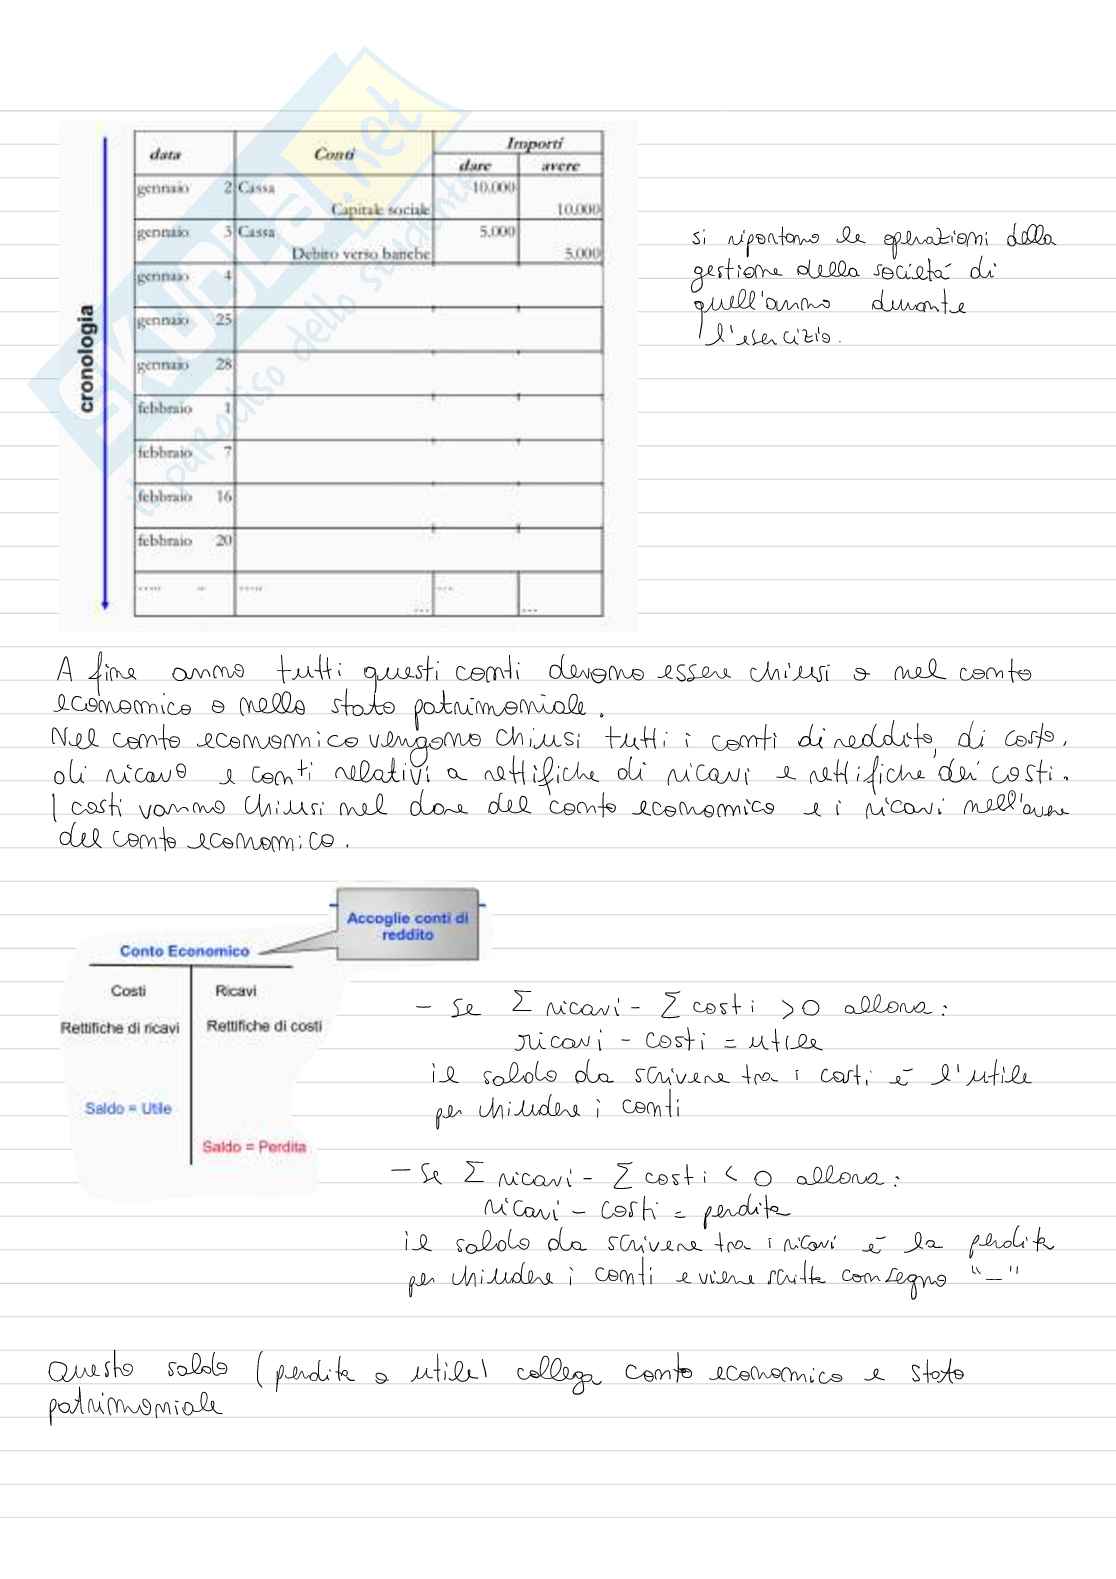 SKUOLA.net
il paradiso dello studente
cronologia
data Conti Importi
dare avere
gennaio 2 Cassa 10.000
Capitale sociale 10.000
gennaio 3 Cassa 5.000
Debito verso banche 5.000
gennaio 4
gennaio 25
gennaio 28
febbraio 1
febbraio 7
febbraio 16
febbraio 20
..... .. ..... ...
... ...
si riportano le operazioni della
gestione della società di
quell'anno durante
l'esercizio.
A fine anno tutti questi conti devono essere chiusi o nel conto
economico o nello stato patrimoniale.
Nel conto economico vengono chiusi tutti i conti di reddito, di costo,
di ricavo e conti relativi a rettifiche di ricavi e rettifiche dei costi.
I costi vanno chiusi nel dare del conto economico e i ricavi nell'avere
del conto economico.
Accoglie conti di
reddito
Conto Economico
Costi Ricavi
Rettifiche di ricavi Rettifiche di costi
Saldo = Utile
Saldo = Perdita
- Se Σ ricavi - Σ costi > 0 allora:
ricavi - costi = utile
il saldo da scrivere tra i costi è l'utile
per chiudere i conti
- Se Σ ricavi - Σ costi < 0 allora:
ricavi - costi = perdita
il saldo da scrivere tra i ricavi è la perdita
per chiudere i conti e viene scritta con segno "-"
Questo saldo (perdita o utile) collega conto economico e stato
patrimoniale